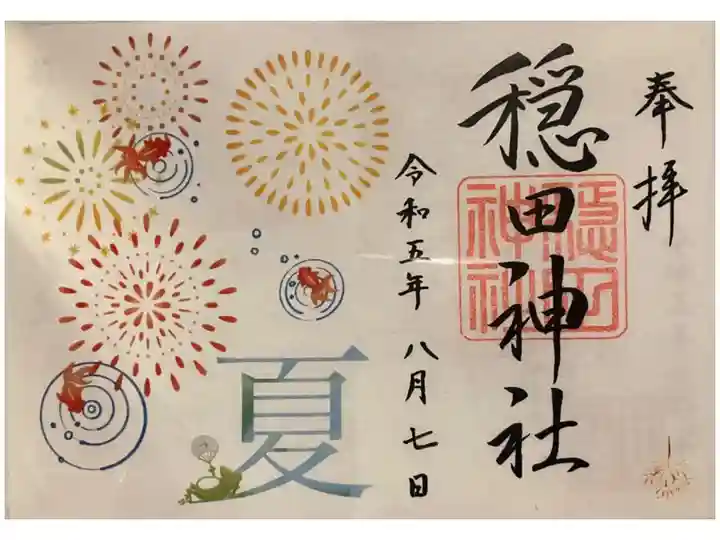 奉拝
穏田神社
隠田神社
令和五年 八月七日
夏